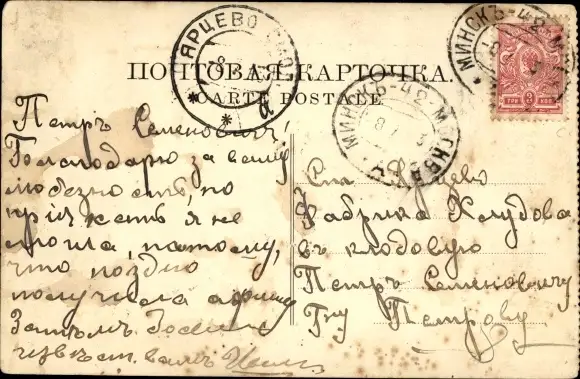 ЯРЦЕВО
МИНСКЪ-42-МОСКВА
ПОЧТОВАЯ КАРТОЧКА.
CARTE POSTALE
МИНСКЪ-42-МОСКВА
Петръ Семеновичъ,
Благодарю за вашу
любезность, но
пріѣхать я не
могла, потому,
что поздно
получила афишу
Затѣмъ
извѣст. вамъ
Ст. Ярцево
Фабрика Хлудова
въ кладовую
Петръ Семеновичу
Гну Петрову